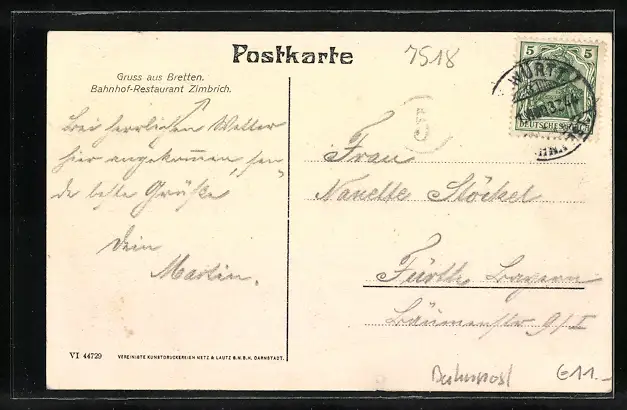 Postkarte
7518
Gruss aus Bretten.
Bahnhof-Restaurant Zimbrich.
Bei herrlichem Wetter
hier angekommen, sen-
de beste Grüße
Dein
Martin.
5 5
WÜRTT.
DEUTSCHES REICH
Frau
Nanette Stöckel
Fürth Bayern
Bäumenstr 9/I
VI 44729 VEREINIGTE KUNSTDRUCKEREIEN METZ & LAUTZ G.M.B.H. DARMSTADT.
Bahnpost
G11.-